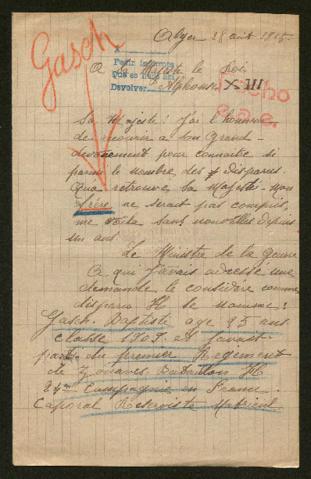 Gasch
Alger 28 août 1915
Pedir informes
Que se haga
Devolver
A sa Majesté le Roi
Alphonse XIII
Hecho
Sa Majesté: J'ai l'honneur
de recourir a son Grand-
devouement pour connaître si
parmi le nombre des disparus
qu'a retrouve, sa Majesté mon
frère ne serait pas compris,
me voila sans nouvelles depuis
un ans.
Le Ministre de la guerre
a qui j'avais adressé une
demande le considère comme
disparu Il se nomme:
Gasch Baptiste age 25 ans
classe 1909 et faisait
partie du premier Regiment
de Zouaves Bataillon
24me Compagnie en France
Caporal Reserviste Matricul